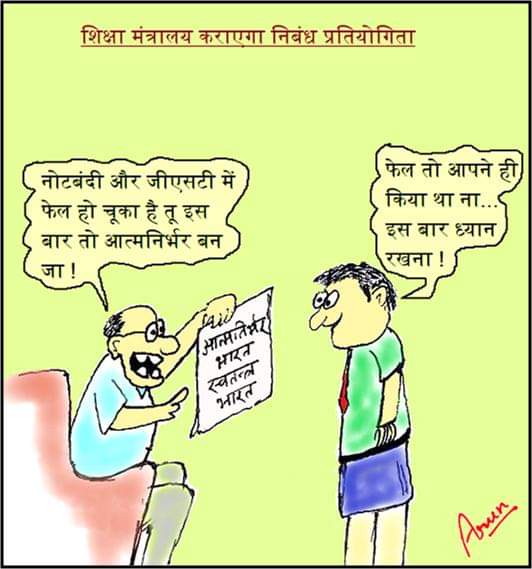 शिक्षा मंत्रालय कराएगा निबंध प्रतियोगिता
नोटबंदी और जीएसटी में
फेल हो चूका है तू इस
बार तो आत्मनिर्भर बन
जा !
फेल तो आपने ही
किया था ना...
इस बार ध्यान
रखना !
आत्मनिर्भर
भारत
स्वतन्त्र
भारत
Arun